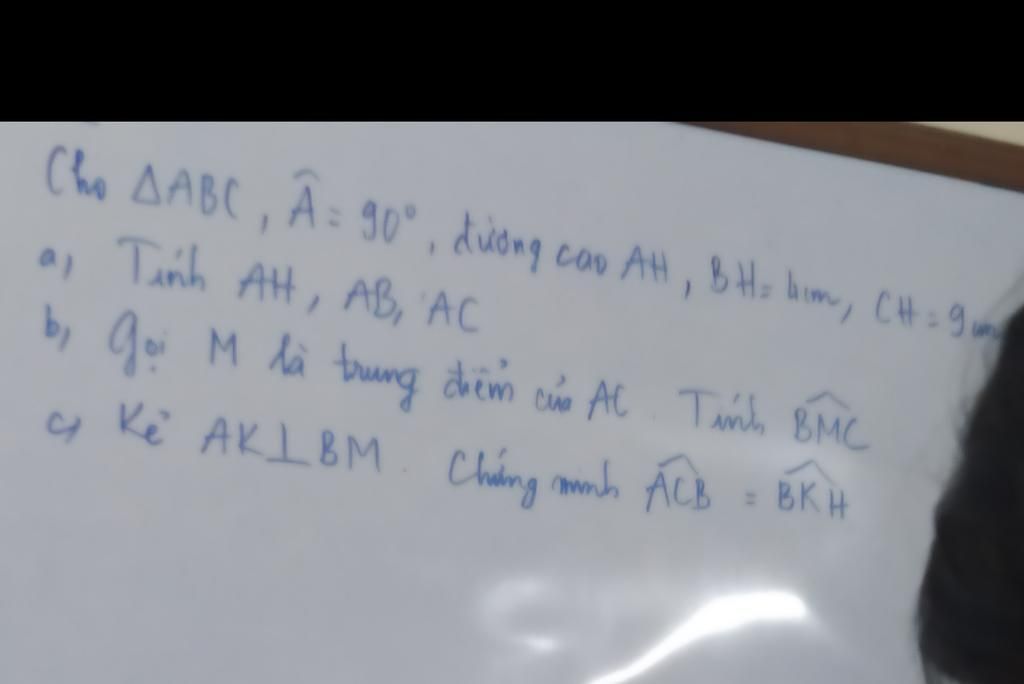 Cho ΔABC, Â = 90°, đường cao AH, BH = 4cm, CH = 9cm
a, Tính AH, AB, AC
b, Gọi M là trung điểm của AC. Tính BMC^
c, Kẻ AK⊥BM. Chứng minh ACB^ = BKH^